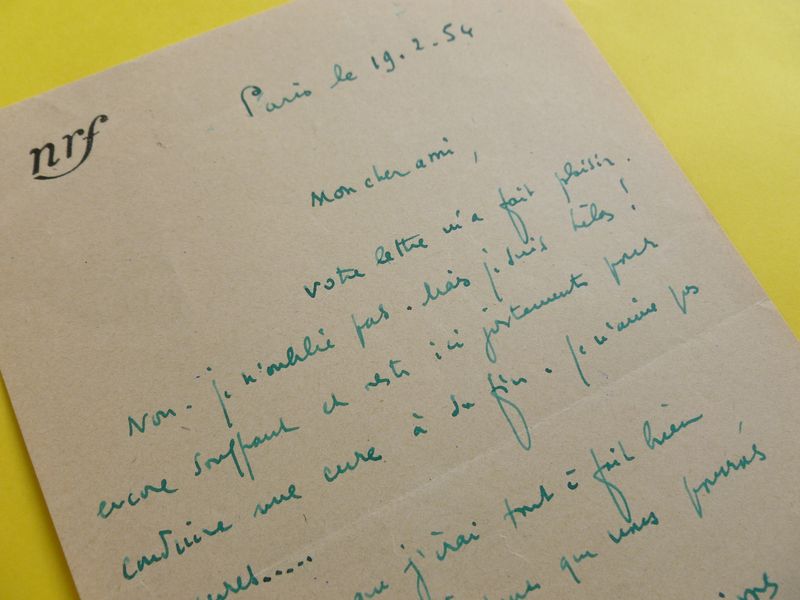 nrf
Paris le 19.2.54
Mon cher ami,
votre lettre m'a fait plaisir.
Non. je n'oublie pas. Mais je suis hélas!
encore souffrant et reste ici justement pour
conduire une cure à sa fin. je n'aime pas
que j'irai tout à fait bien
que vous pourrés